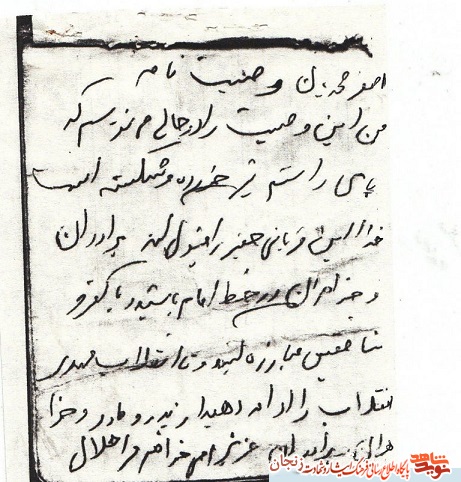 اصغر محمدیان وصیت نامه
من این وصیت را در حالی می نویسم که
پای راستم تیر خورده و شکسته است
خدایا این قربانی حقیر را قبول کن برادران
و خواهران در خط امام باشید با کفر و
منافقین مبارزه کنید و تا انقلاب مهدی
انقلاب را ادامه دهید پدر و مادر و خوا
هران برادران عزیزم امیدوارم مرا حلال
نوید شاهد
پایگاه اطلاع رسانی فرهنگ ایثار و شهادت زنجان